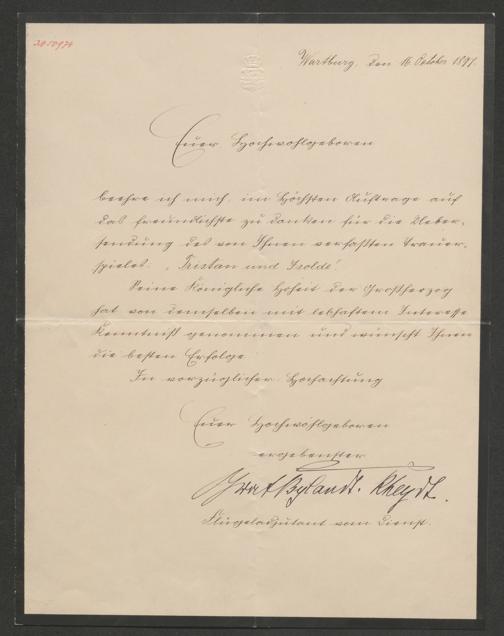 Wartburg, den 16. October 1897.
Euer Hochwohlgeboren
beehre ich mich, im Höchsten Auftrage auf
das freundlichste zu danken für die Ueber-
sendung des von Ihnen verfaßten Trauer-
spieles: „Tristan und Isolde“.
Seine Königliche Hoheit der Großherzog
hat von demselben mit lebhaftem Interesse
Kenntniß genommen und wünscht Ihnen
die besten Erfolge.
In vorzüglicher Hochachtung
Euer Hochwohlgeboren
ergebenster
Graf Bylandt. Rheydt.
Flügeladjutant vom Dienst.